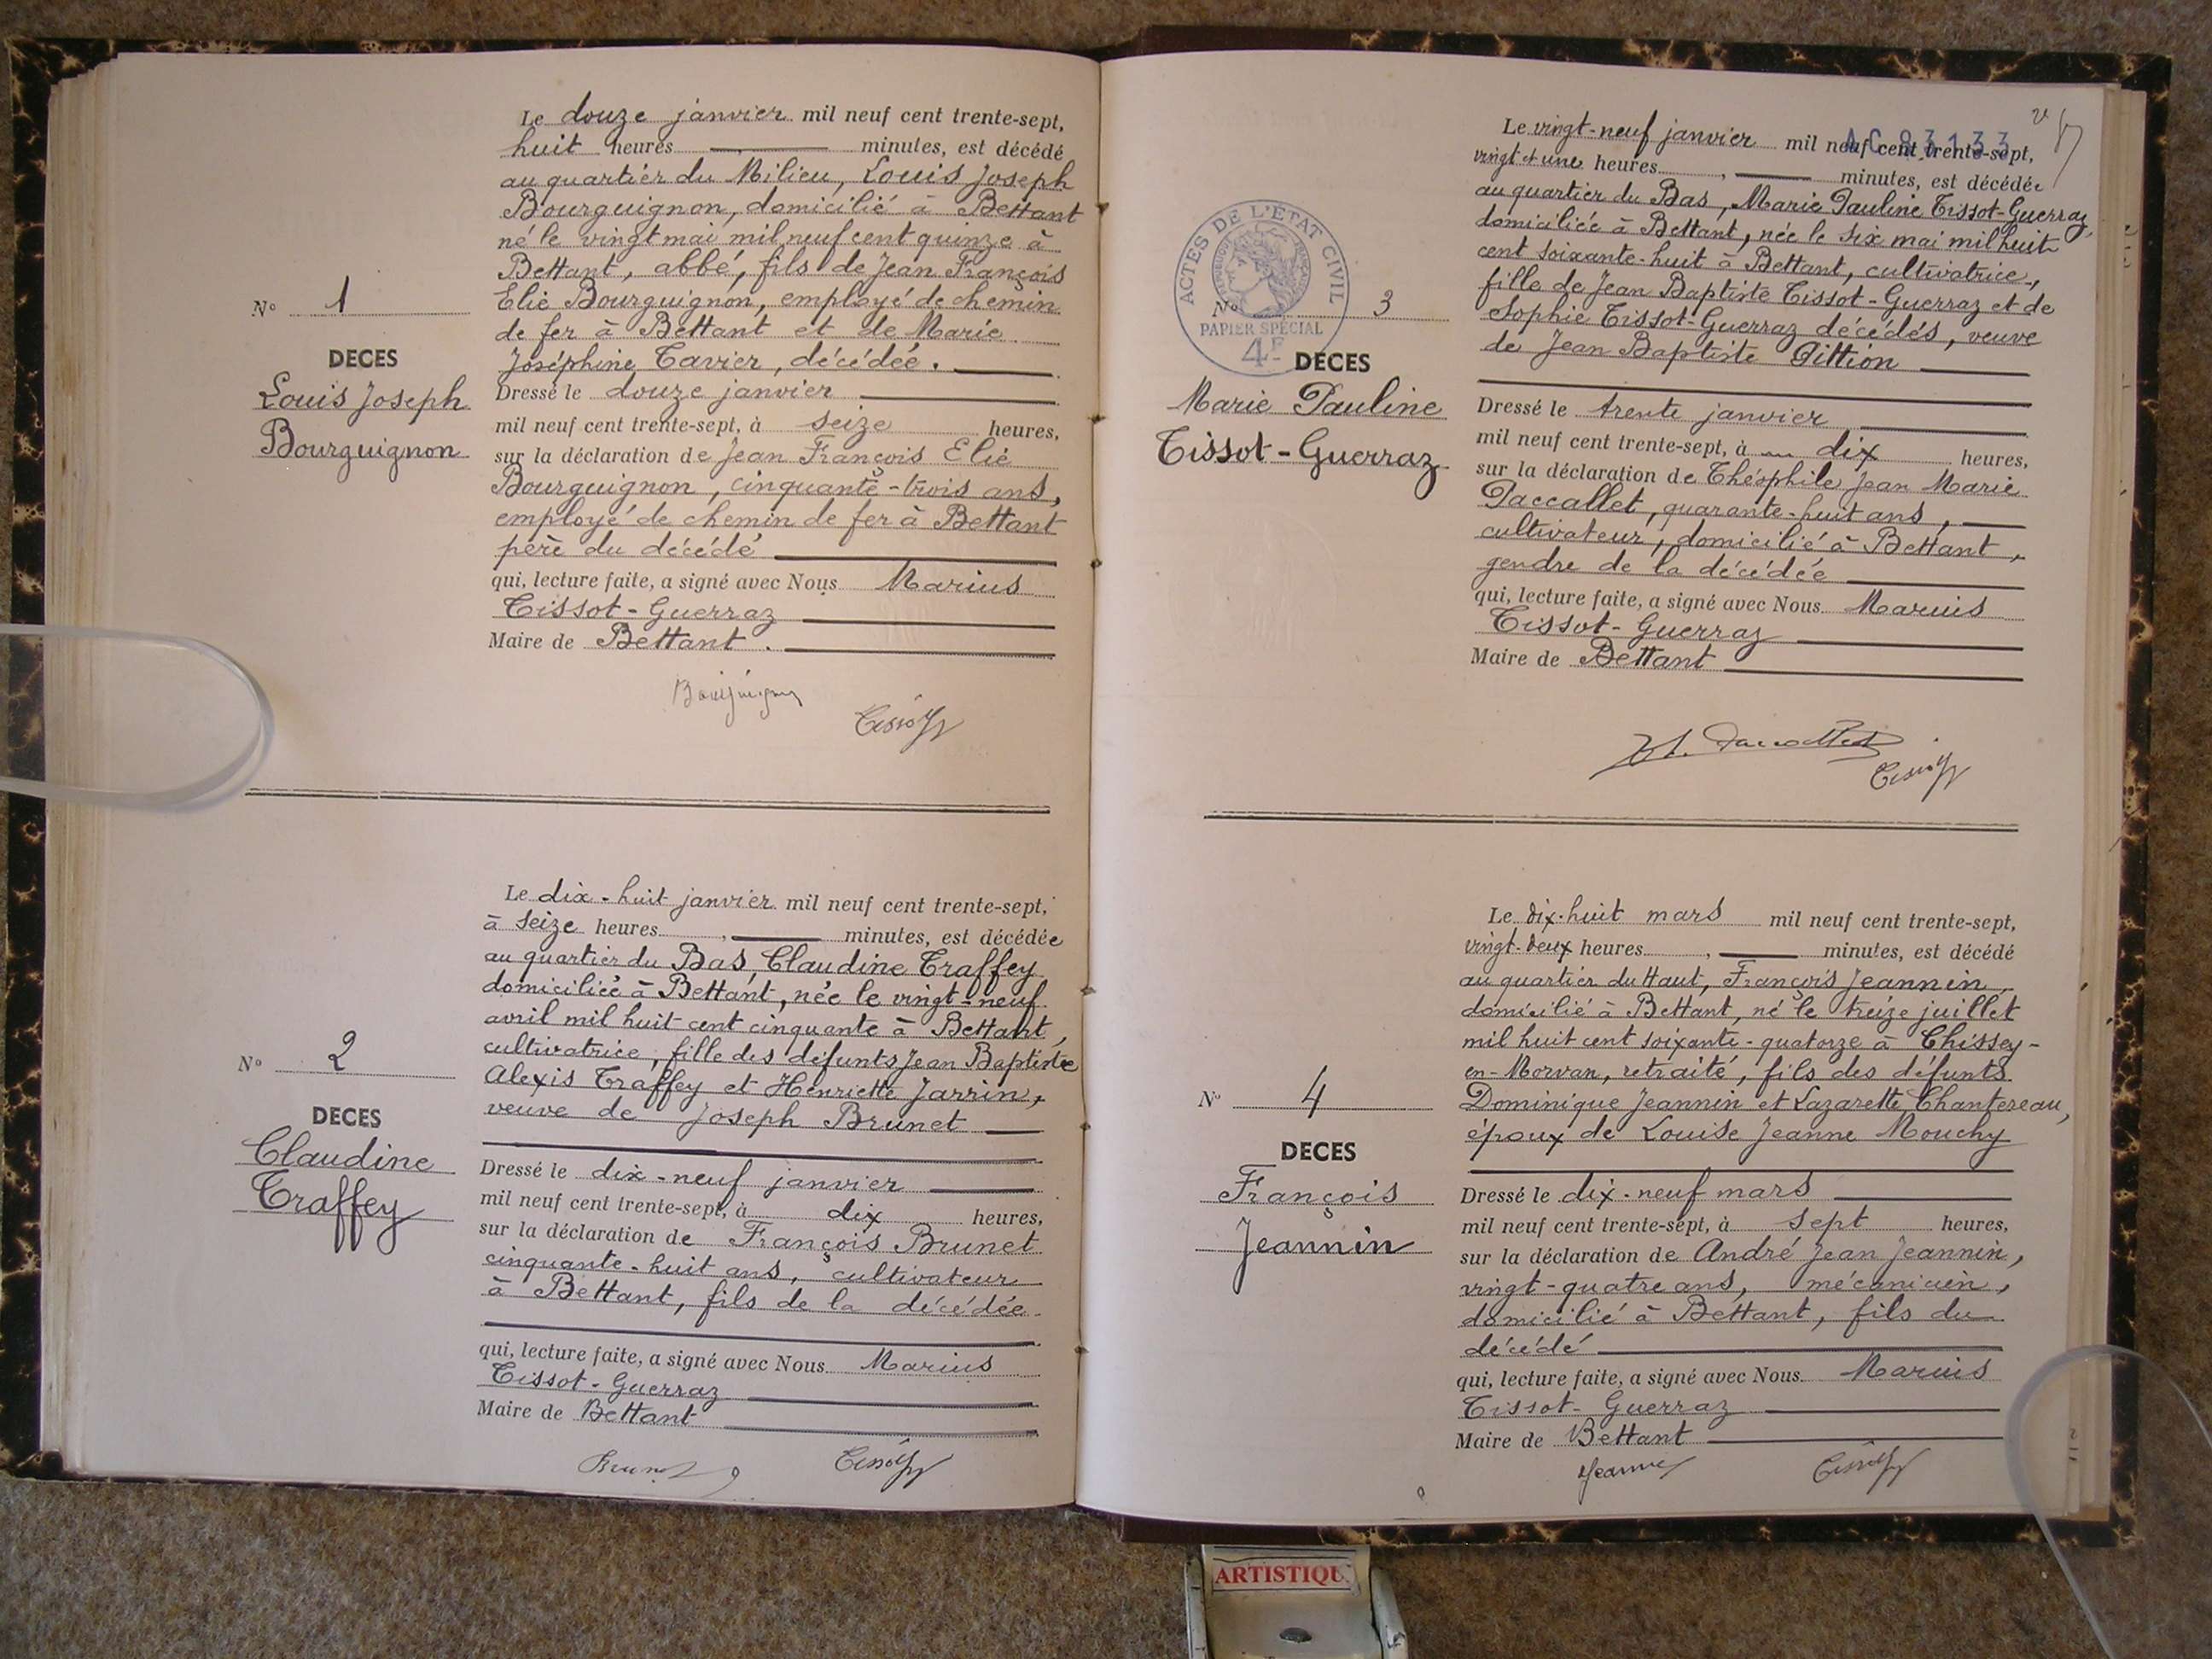 Le douze janvier mil neuf cent trente-sept,
huit heures minutes, est décédé
au quartier du Milieu, Louis Joseph
Bourguignon, domicilié à Bettant
né le vingt mai mil neuf cent quinze à
Bettant, abbé, fils de Jean François
Elie Bourguignon, employé de chemin
de fer à Bettant et de Marie
Joséphine Tavier, décédée.
N° 1
DECES
Louis Joseph
Bourguignon
Dressé le douze janvier
mil neuf cent trente-sept, à seize heures,
sur la déclaration de Jean François Elie
Bourguignon, cinquante-trois ans,
employé de chemin de fer à Bettant
père du décédé
qui, lecture faite, a signé avec Nous Marius
Tissot-Guerraz
Maire de Bettant.
Bourguignon
Le dix-huit janvier mil neuf cent trente-sept,
à seize heures, minutes, est décédée
au quartier du Bas, Claudine Traffey
domiciliée à Bettant, née le vingt-neuf
avril mil huit cent cinquante à Bettant,
cultivatrice, fille des défunts Jean Baptiste
Alexis Traffey et Henriette Jarrin,
veuve de Joseph Brunet
N° 2
DECES
Claudine
Traffey
Dressé le dix-neuf janvier
mil neuf cent trente-sept, à dix heures,
sur la déclaration de François Brunet
cinquante-huit ans, cultivateur
à Bettant, fils de la décédée
qui, lecture faite, a signé avec Nous Marius
Tissot-Guerraz
Maire de Bettant
Brunet
AC 83133
Le vingt-neuf janvier mil neuf cent trente-sept,
vingt et une heures, minutes, est décédée
au quartier du Bas, Marie Pauline Tissot-Guerraz,
domiciliée à Bettant, née le six mai mil huit
cent soixante-huit à Bettant, cultivatrice,
fille de Jean Baptiste Tissot-Guerraz et de
Sophie Tissot-Guerraz décédés, veuve
de Jean Baptiste Pittion
ACTES DE L'ÉTAT CIVIL
PAPIER SPÉCIAL
4F
N° 3
DECES
Marie Pauline
Tissot-Guerraz
Dressé le trente janvier
mil neuf cent trente-sept, à dix heures,
sur la déclaration de Théophile Jean Marie
Paccallet, quarante-huit ans,
cultivateur, domicilié à Bettant,
gendre de la décédée
qui, lecture faite, a signé avec Nous Marius
Tissot-Guerraz
Maire de Bettant
Le dix-huit mars mil neuf cent trente-sept,
vingt-deux heures, minutes, est décédé
au quartier du Haut, François Jeannin,
domicilié à Bettant, né le treize juillet
mil huit cent soixante-quatorze à Chissey-
en-Morvan, retraité, fils des défunts
Dominique Jeannin et Lazarette Chantereau,
époux de Louise Jeanne Mouchy
N° 4
DECES
François
Jeannin
Dressé le dix-neuf mars
mil neuf cent trente-sept, à sept heures,
sur la déclaration de André Jean Jeannin,
vingt-quatre ans, mécanicien,
domicilié à Bettant, fils du
décédé
qui, lecture faite, a signé avec Nous Marius
Tissot-Guerraz
Maire de Bettant
ARTISTIQU